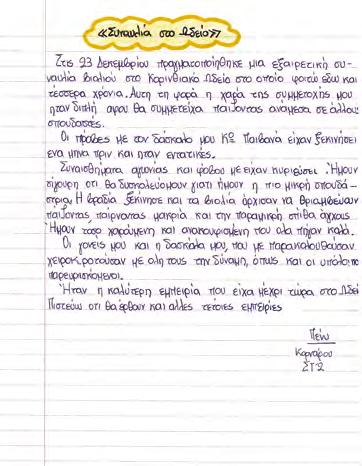 «Συναυλία στο Ωδείο»
Στις 23 Δεκεμβρίου πραγματοποιήθηκε μια εξαιρετική συ-
ναυλία βιολιού στο Κορινθιακό Ωδείο στο οποίο φοιτώ εδώ και
τέσσερα χρόνια. Αυτή τη φορά η χαρά της συμμετοχής μου
ήταν διπλή αφού θα συμμετείχα παίζοντας ανάμεσα σε άλλους
σπουδαστές.
Οι πρόβες με τον δάσκαλό μου Κο είχαν ξεκινήσει
ένα μήνα πριν και ήταν εντατικές.
Συναισθήματα αγωνίας και φόβου με είχαν κυριεύσει. Ήμουν
σίγουρη ότι θα δυσκολευόμουν γιατί ήμουν η πιο μικρή σπουδά-
στρια. Η βραδιά ξεκίνησε και τα βιολιά άρχισαν να θριαμβεύουν
παίζοντας, παίρνοντας μακριά και την παραμικρή σπίθα άγχους.
Ήμουν τόσο χαρούμενη και ανακουφισμένη που όλα πήγαν καλά.
Οι γονείς μου και η δασκάλα μου, που με παρακολουθούσαν
χειροκροτούσαν με όλη τους την δύναμη, όπως και οι υπόλοιποι
παρευρισκόμενοι.
Ήταν η καλύτερη εμπειρία που είχα μέχρι τώρα στο Ωδεί
Πιστεύω ότι θα έρθουν και άλλες τέτοιες εμπειρίες
ΣΤ2